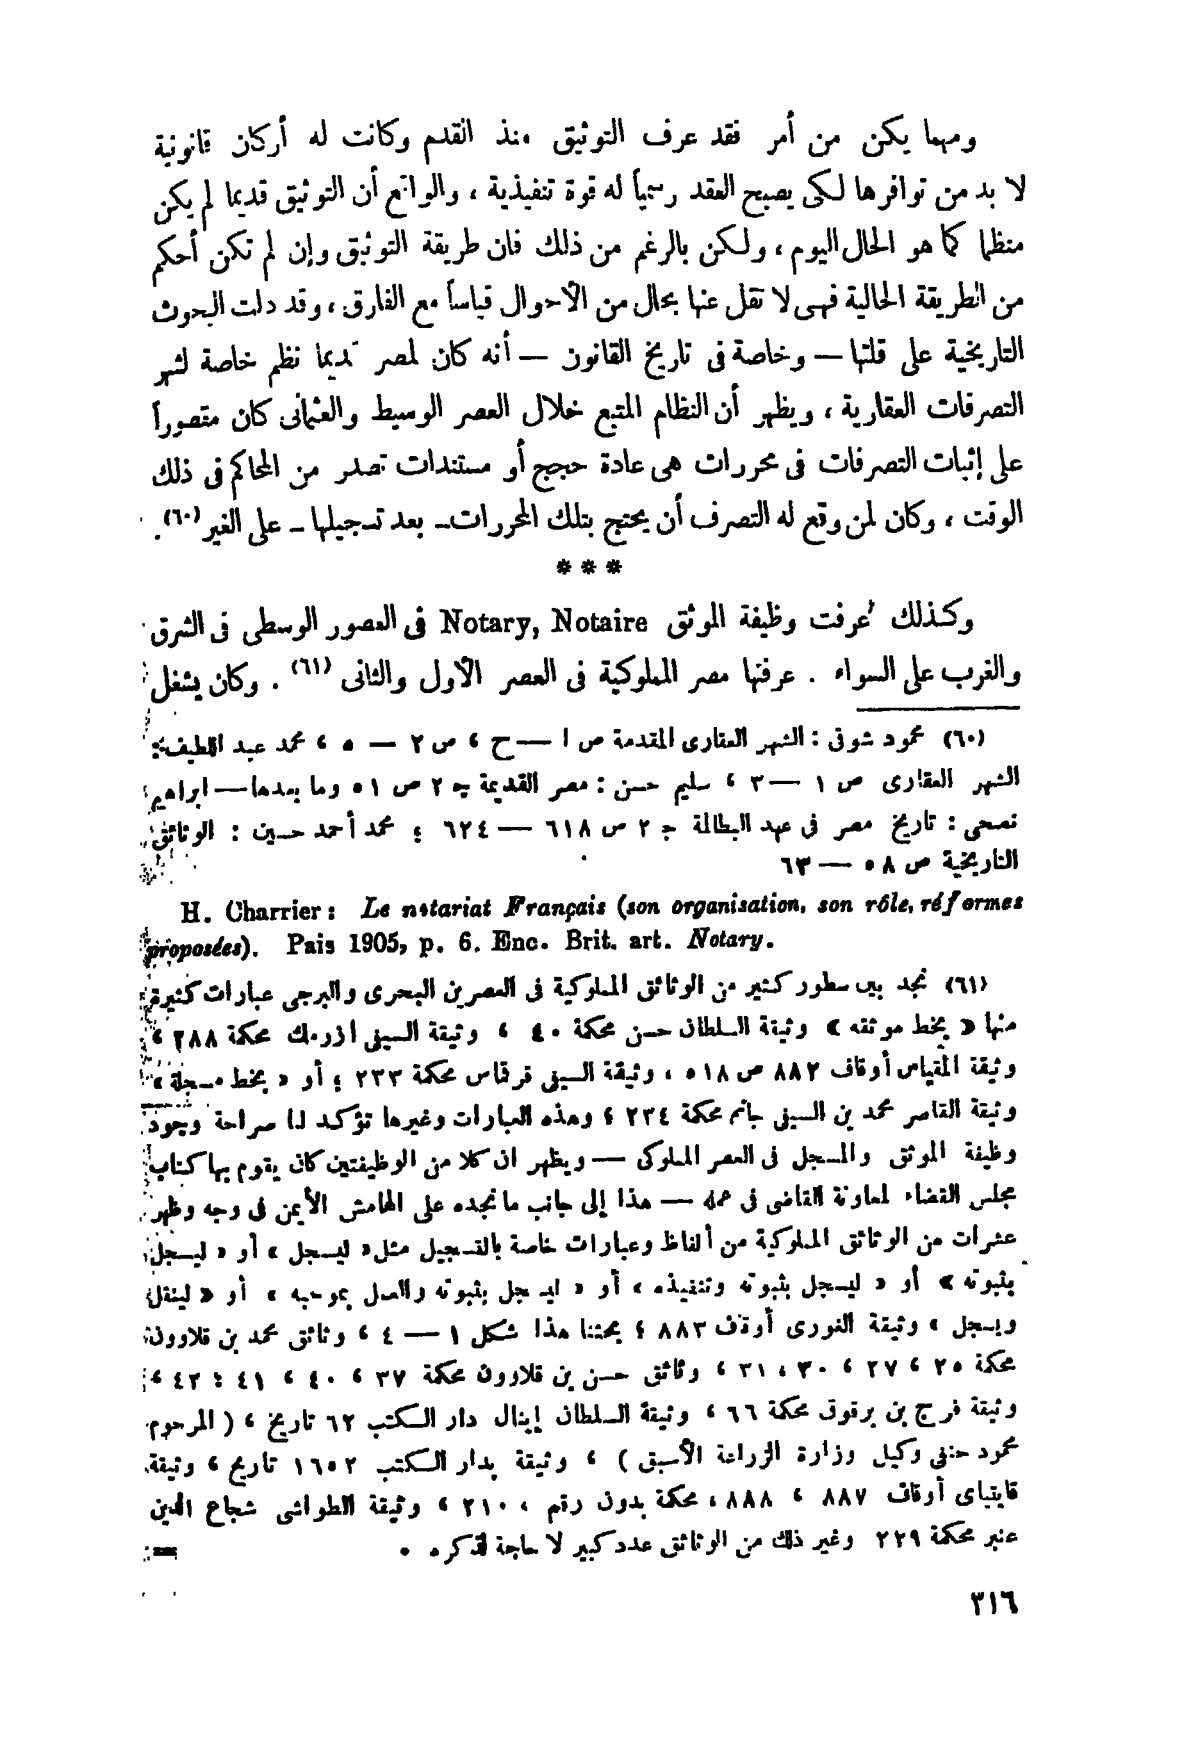 ومهما يكن من أمر فقد عرف التوثيق منذ القدم وكانت له أركان قانونية
لا بد من توافرها لكى يصبح العقد رسمياً له قوة تنفيذية ، والواقع أن التوثيق قديما لم يكن
منظما كما هو الحال اليوم ، ولكن بالرغم من ذلك فان طريقة التوثيق وإن لم تكن أحكم
من الطريقة الحالية فهى لا تقل عنها بحال من الأحوال قياساً مع الفارق ، وقد دلت البحوث
التاريخية على قلتها — وخاصة فى تاريخ القانون — أنه كان لمصر قديما نظم خاصة لشهر
التصرفات العقارية ، ويظهر أن النظام المتبع خلال العصر الوسيط والعثمانى كان مقصوراً
على إثبات التصرفات فى محررات هى عادة حجج أو مستندات تصدر من المحاكم فى ذلك
الوقت ، وكان لمن وقع له التصرف أن يحتج بتلك المحررات ـ بعد تسجيلها ـ على الغير (٦٠) .
* * *
وكذلك عرفت وظيفة الموثق Notary, Notaire فى العصور الوسطى فى الشرق
والغرب على السواء . عرفتها مصر المملوكية فى العصر الأول والثانى (٦١) . وكان يشغل
(٦٠) محمود شوقى : الشهر العقارى المقدمة ص ا — ح ، ص ٢ — ٥ ، محمد عبد اللطيف :
الشهر العقارى ص ١ — ٣ ، سليم حسن : مصر القديمة ج ٢ ص ٥١ وما بعدها — ابراهيم
نصحى : تاريخ مصر فى عهد البطالمة ج ٢ ص ٦١٨ — ٦٢٤ ؛ محمد أحمد حسين : الوثائق
التاريخية ص ٥٨ — ٦٣
H. Charrier : Le notariat Français (son organisation, son rôle, réformes
proposées). Pais 1905, p. 6. Enc. Brit. art. Notary.
(٦١) نجد بين سطور كثير من الوثائق المملوكية فى العصرين البحرى والبرجى عبارات كثيرة
منها « بخط موثقه » وثيقة السلطان حسن محكمة ٤٠ ، وثيقة السيفى ازرمك محكمة ٢٨٨ ،
وثيقة المقياس أوقاف ٨٨٢ ص ٥١٨ ، وثيقة السيفى قرقاس محكمة ٢٣٣ ؛ أو « بخط مسجله »
وثيقة القاصر محمد بن السيفى جانم محكمة ٢٣٤ ، وهذه العبارات وغيرها تؤكد لنا صراحة وجود
وظيفة الموثق والمسجل فى العصر المملوكى — ويظهر ان كلا من الوظيفتين كان يقوم بها كتاب
مجلس القضاء لمعاونة القاضى فى عمله — هذا إلى جانب ما نجده على الهامش الأيمن فى وجه وظهر
عشرات من الوثائق المملوكية من ألفاظ وعبارات خاصة بالتسجيل مثل « ليسجل » أو « ليسجل
بثبوته » أو « ليسجل بثبوته وتنفيذه » أو « ليسجل بثبوته والعمل بموجبه » أو « لينقل
ويسجل » وثيقة الغورى أوقاف ٨٨٣ ؛ بحثنا هذا شكل ١ — ٤ ، وثائق محمد بن قلاوون
محكمة ٢٥ ، ٢٧ ، ٣٠ ، ٣١ ، وثائق حسن بن قلاوون محكمة ٣٧ ، ٤٠ ، ٤١ ؛ ٤٢ ،
وثيقة فرج بن برقوق محكمة ٦٦ ، وثيقة السلطان إينال دار الكتب ٦٢ تاريخ ، ( المرحوم
محمود حنفى وكيل وزارة الزراعة الأسبق ) ، وثيقة بدار الكتب ١٦٥٢ تاريخ ، وثيقة
قايتباى أوقاف ٨٨٧ ، ٨٨٨ ، محكمة بدون رقم ، ٢١٠ ، وثيقة الطواشى شجاع الدين
عنبر محكمة ٢٢٩ وغير ذلك من الوثائق عدد كبير لا حاجة لذكره .
=
٣١٦